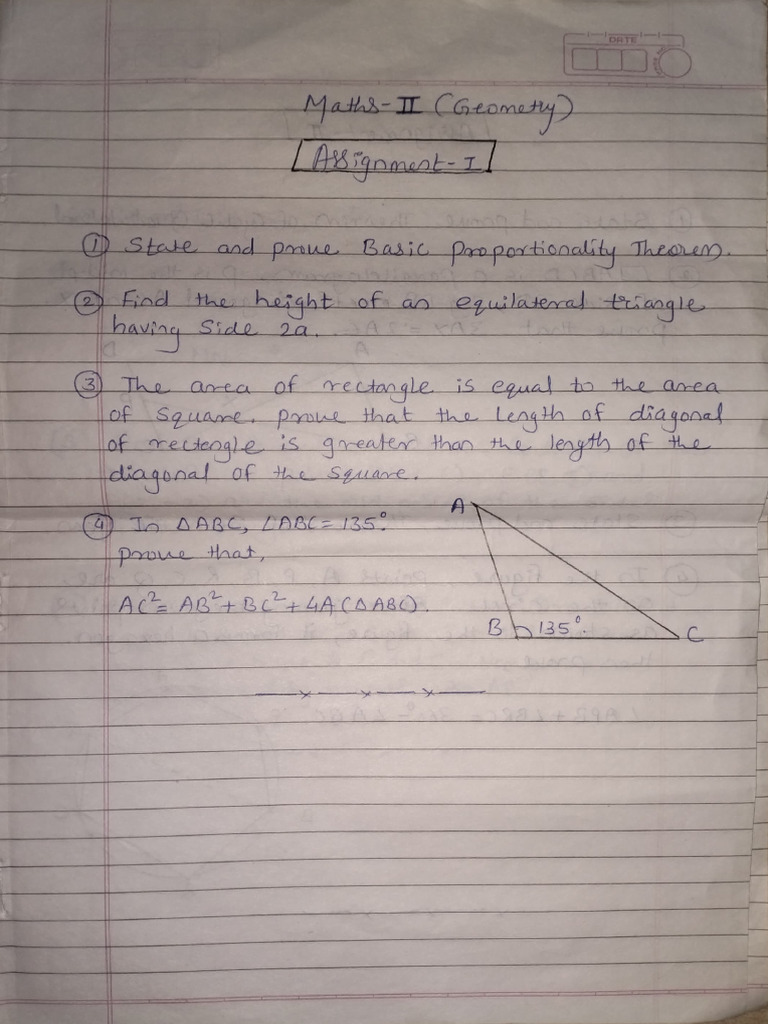 DATE
Maths-II (Geometry)
Assignment-I
① State and prove Basic Proportionality Theorem.
② Find the height of an equilateral triangle
having Side 2a.
③ The area of rectangle is equal to the area
of Square. prove that the length of diagonal
of rectangle is greater than the length of the
diagonal of the square.
④ In △ABC, ∠ABC = 135°.
prove that,
AC² = AB² + BC² + 4A(△ABC).
A
B 135° C